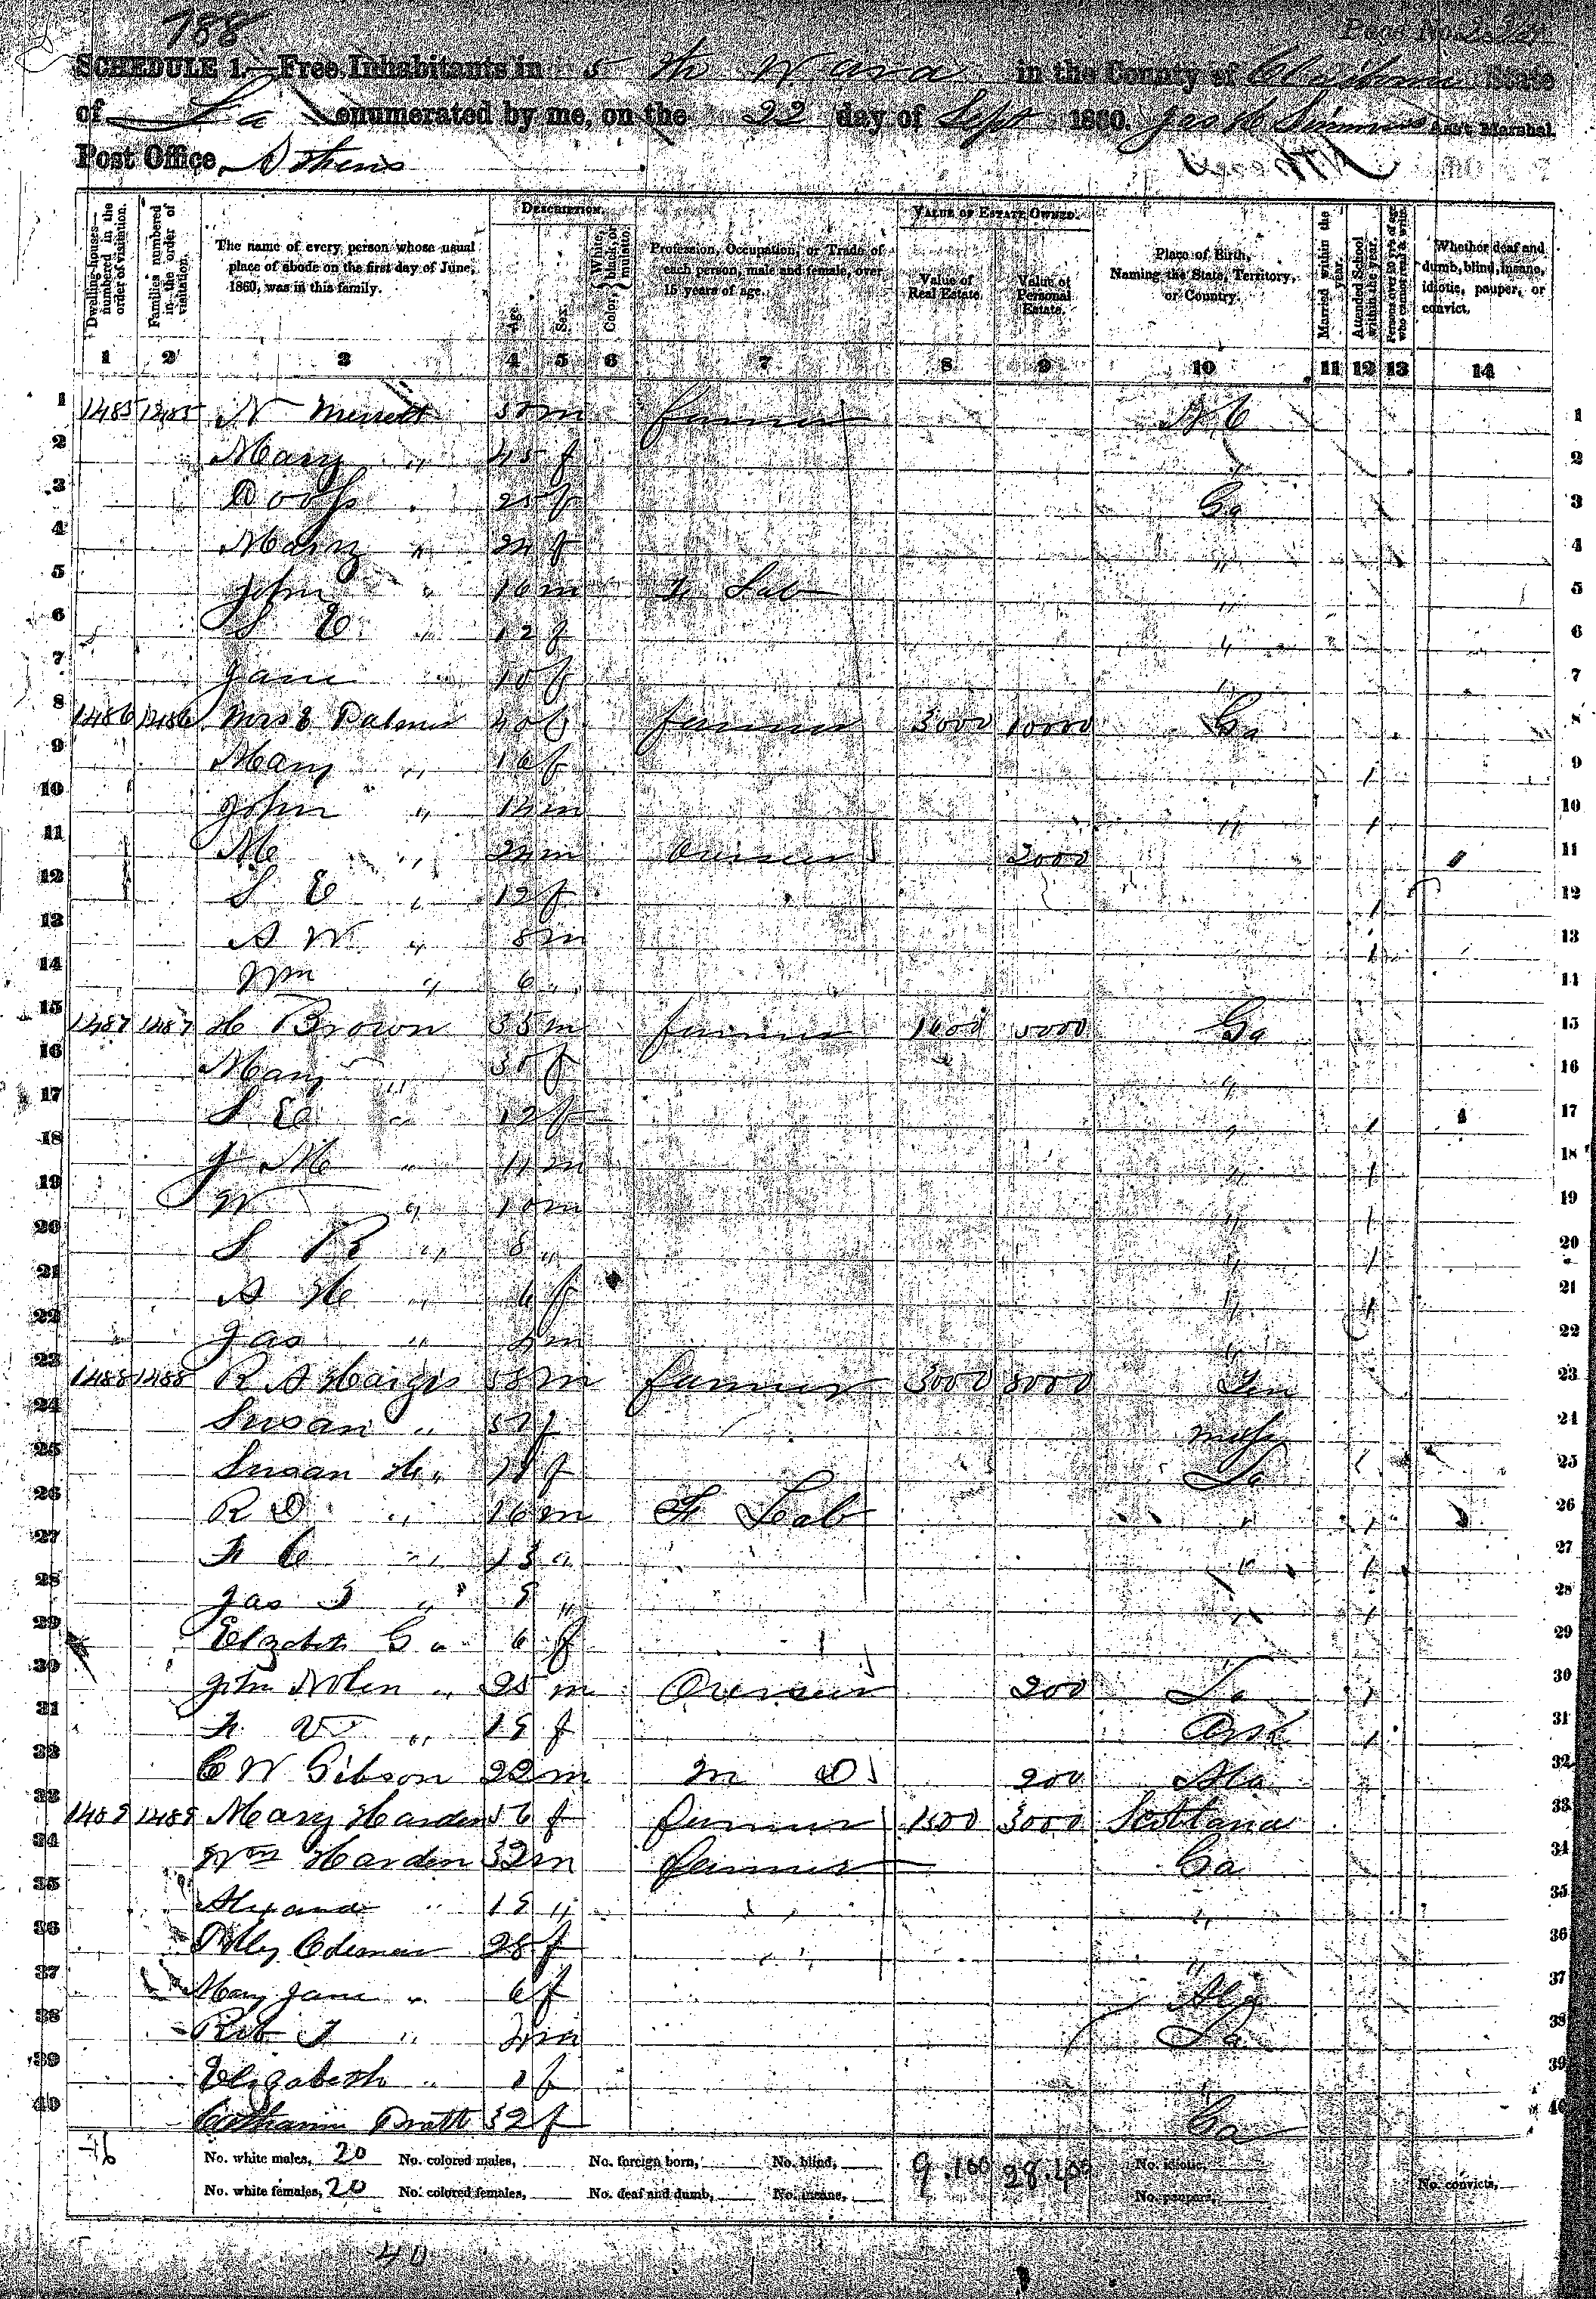 788
Page No.
SCHEDULE 1.—Free Inhabitants in 5th Ward in the County of Claiborne State
of La enumerated by me, on the 22 day of Sept 1860. Jas H Simmons Ass't Marshal.
Post Office Athens
Dwelling-houses—numbered in the order of visitation.
Families numbered in the order of visitation.
The name of every person whose usual place of abode on the first day of June, 1860, was in this family.
DESCRIPTION.
Age.
Sex.
Color, { White, black, or mulatto.
Profession, Occupation, or Trade of each person, male and female, over 15 years of age.
VALUE OF ESTATE OWNED.
Value of Real Estate.
Value of Personal Estate.
Place of Birth, Naming the State, Territory, or Country.
Married within the year.
Attended School within the year.
Persons over 20 y'rs of age who cannot read & write.
Whether deaf and dumb, blind, insane, idiotic, pauper, or convict.
1 2 3 4 5 6 7 8 9 10 11 12 13 14
1 1485 1485 N Merrett m farmer N C 1
2 Mary " 45 f " 2
3 " 25 f Ga 3
4 Mary " 24 f " 4
5 John " 16 m F Lab " 5
6 S E " 12 f " 6
7 Jane " 10 f " 7
8 1486 1486 Mrs E Palmer 40 f farmer 3000 10000 Ga 8
9 Mary " 16 f " / 9
10 John " 14 m " / 10
11 M " 24 m Overseer 2000 11
12 S E " 12 f / 12
13 A W " 8 m / 13
14 Wm " 6 " 14
15 1487 1487 H Brown 35 m farmer 1600 5000 Ga 15
16 Mary " 30 f " 16
17 S E " 12 f " / 17
18 J M " 11 m " / 18
19 W " 10 m " / 19
20 S R " 8 " " / 20
21 A H " 6 f " / 21
22 Jas " 4 m " 22
23 1488 1488 R A Hargis 58 m farmer 3000 8000 Ten 23
24 Susan " 37 f 24
25 Susan H " f La 25
26 R D " 16 m F Lab " / 26
27 F C " 13 " " / 27
28 Jas " 9 " " / 28
29 Elizabeth G " 6 f 29
30 John Nolen " 25 m Overseer 200 La / 30
31 " 19 f Ark / 31
32 C W Gibson 22 m M D 200 Ala 32
33 1489 1489 Mary Harden 56 f farmer 1500 3000 Scotland 33
34 Wm Harden 32 m farmer Ga 34
35 " 19 " " " 35
36 28 f " " 36
37 Mary Jane " 6 f Ala 37
38 Rob " m La 38
39 Elizabeth " f " 39
40 Pratt 32 f Ga 40
No. white males, 20 No. colored males, No. foreign born, No. blind, 9.100 28.400 No. idiotic,
No. white females, 20 No. colored females, No. deaf and dumb, No. insane, No. paupers, No. convicts,
40